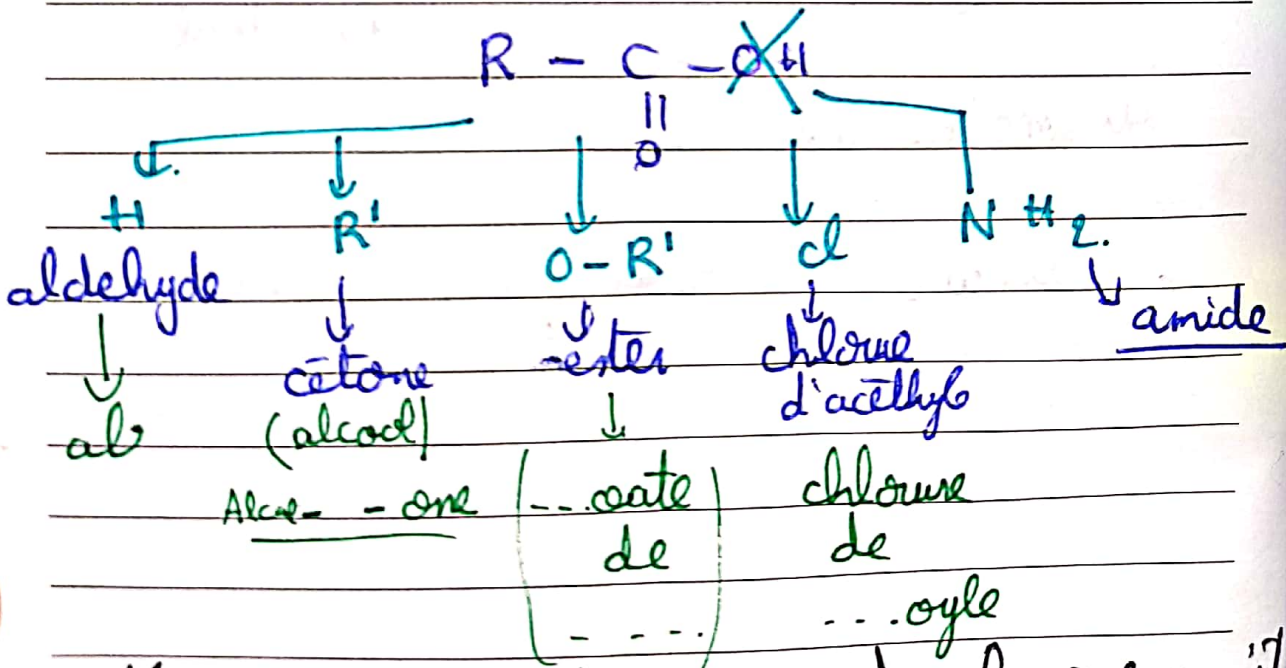 R - C - OH
||
O
H R' O-R' cl NH2.
aldehyde cétone -ester chlorure d'acéthyle amide
al (alcool)
Alca- - one ...oate de .... chlorure de ...oyle